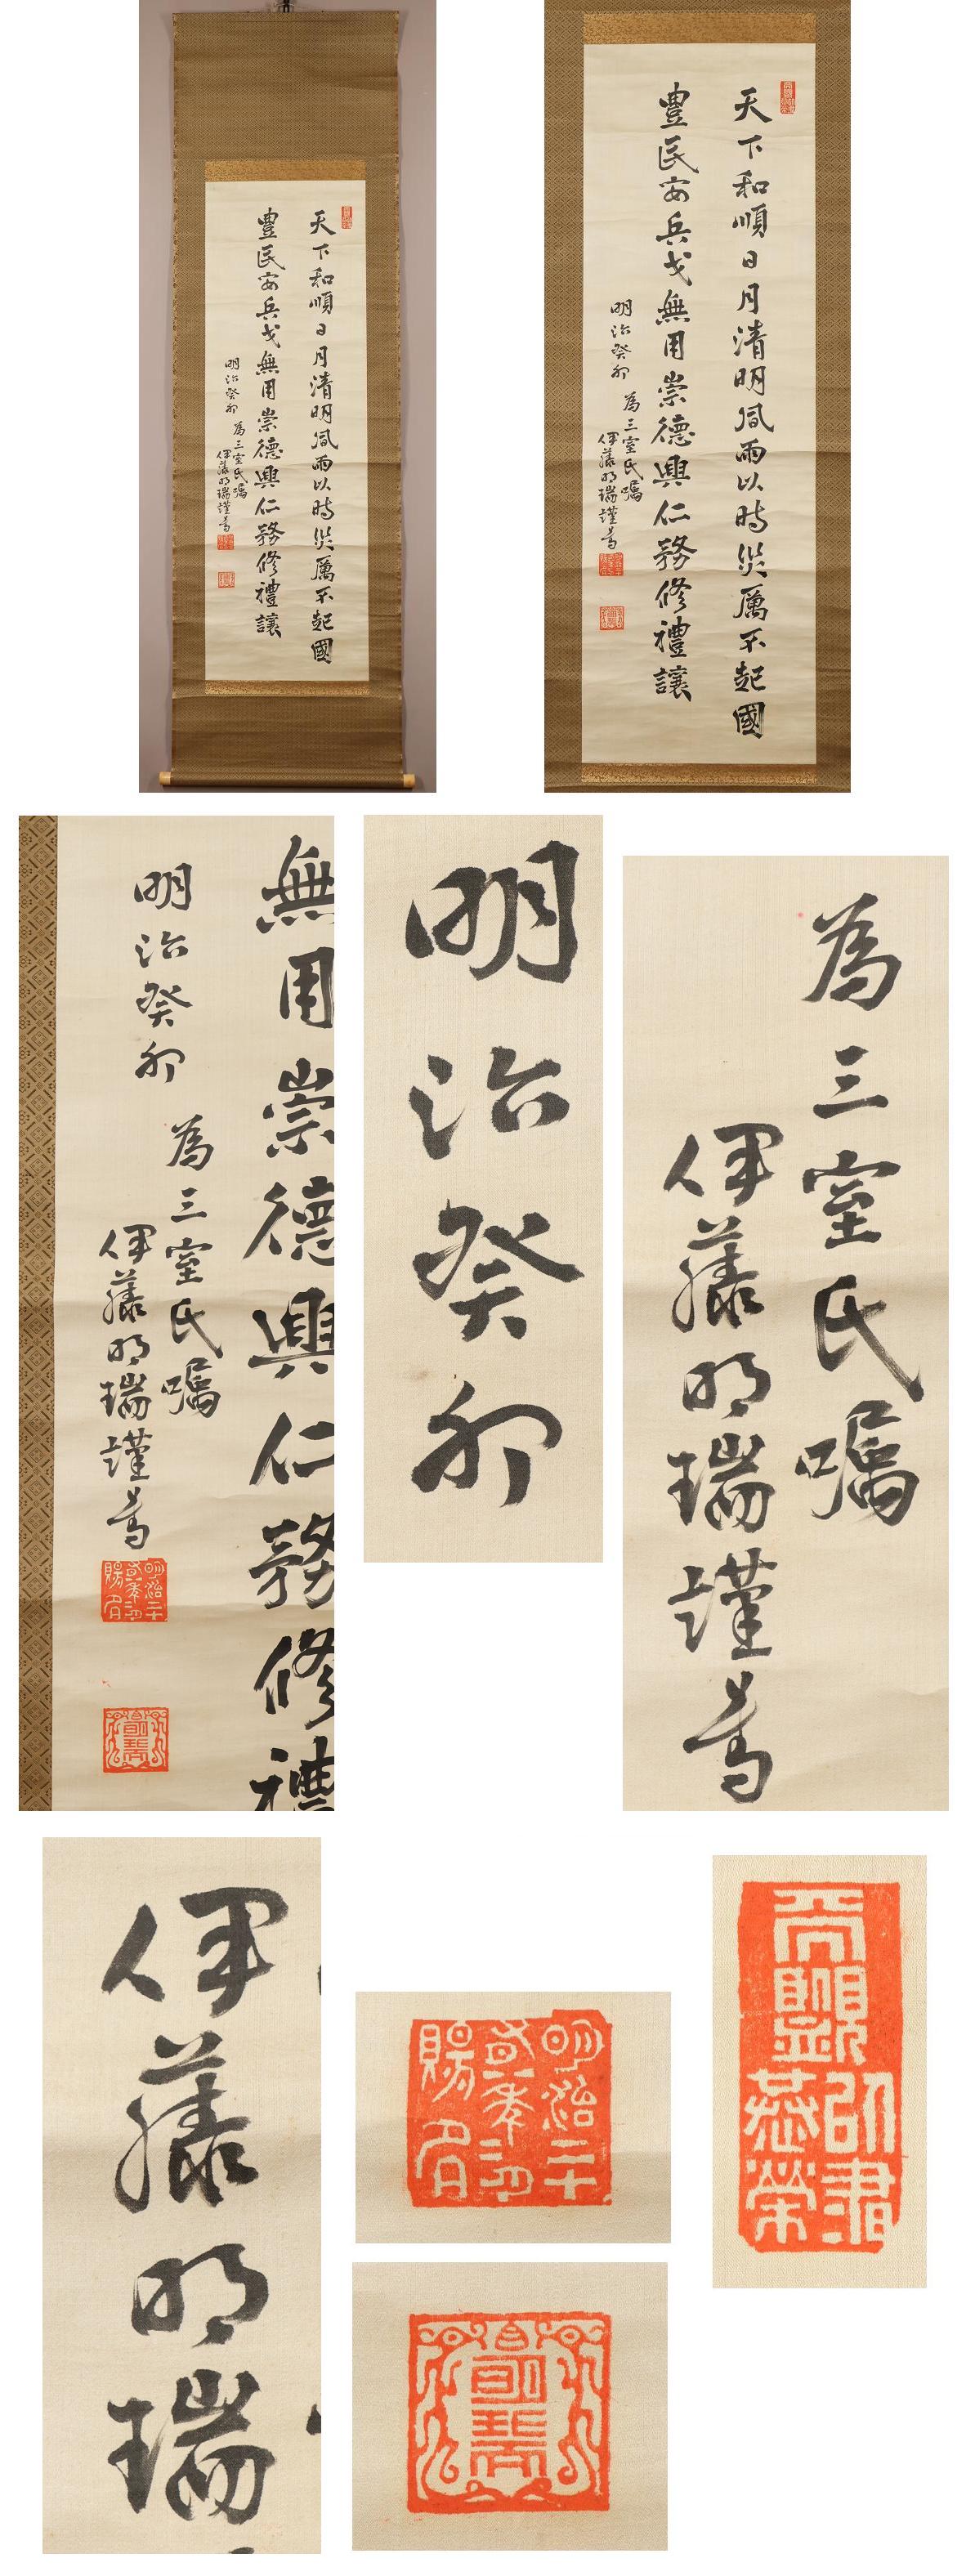 天下和順日月清明風雨以時災厲不起國
豐民安兵戈無用崇德興仁務修禮讓
明治癸卯
為三室氏嘱
伊藤明瑞謹書
天下和順日月清明風雨以時災厲不起國
豐民安兵戈無用崇德興仁務修禮讓
明治癸卯
為三室氏嘱
伊藤明瑞謹書
無用崇德興仁務修禮
明治癸卯
為三室氏嘱
伊藤明瑞謹書
明治癸卯
為三室氏嘱
伊藤明瑞謹書
伊藤明瑞